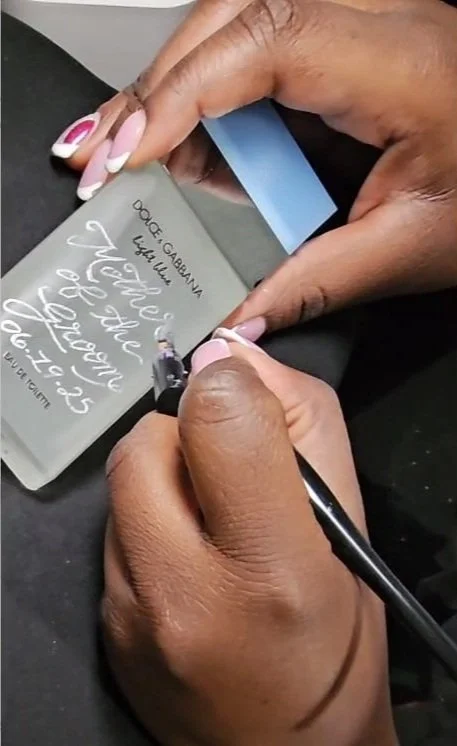 DOLCE & GABBANA
light blue
Mother
of the
Groom
06.19.25
EAU DE TOILETTE